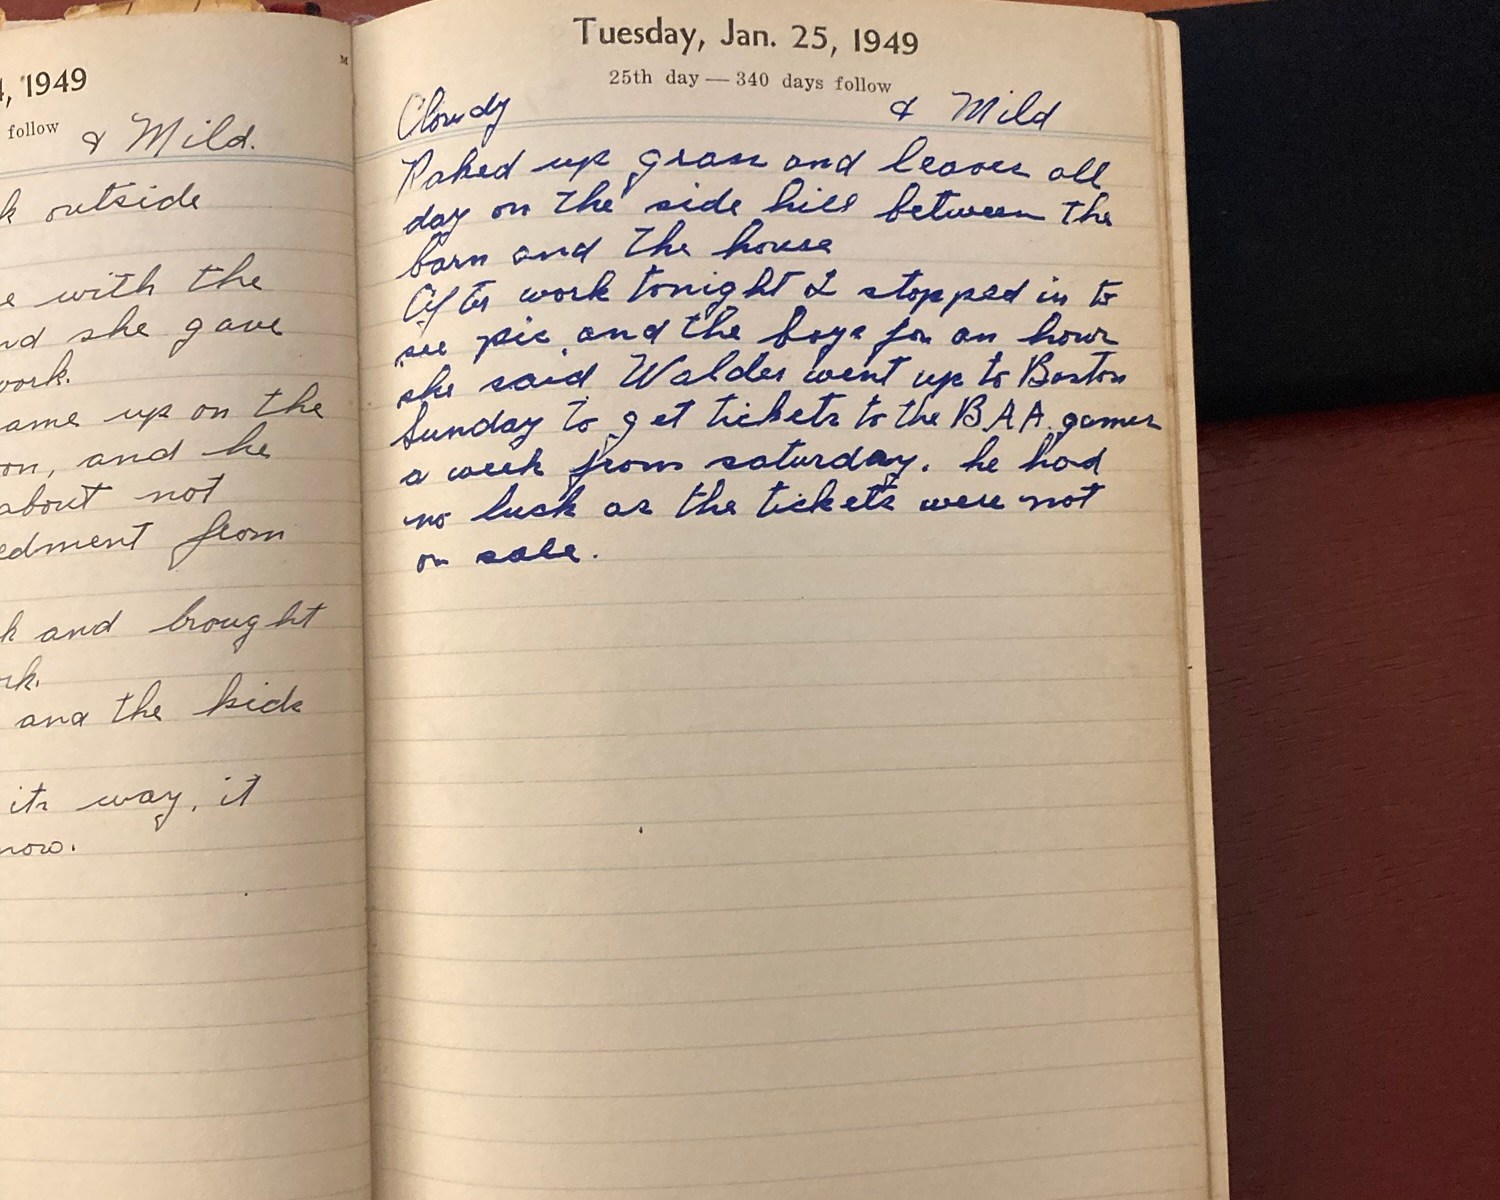 4, 1949
follow
& Mild.
k outside
e with the
nd she gave
work.
ame up on the
on, and he
about not
edment from
k and brought
rk.
and the kids
its way, it
now.
M
Tuesday, Jan. 25, 1949
25th day — 340 days follow
Cloudy & Mild
Raked up grass and leaves all
day on the side hill between the
barn and the house
After work tonight I stopped in to
see pic and the boys for an hour
she said Walder went up to Boston
Sunday to get tickets to the B.A.A. games
a week from saturday. he had
no luck as the tickets were not
on sale.